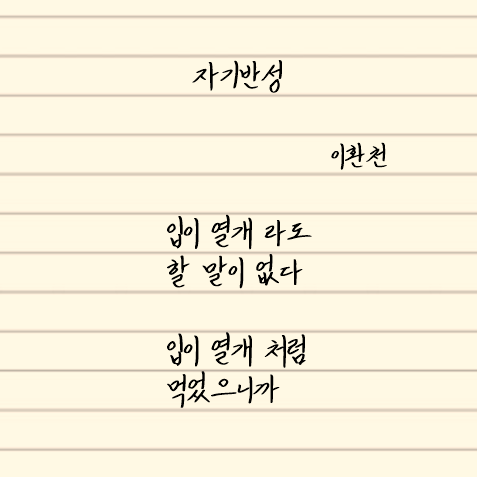 자기반성
이환천
입이 열개 라도
할 말이 없다
입이 열개 처럼
먹었으니까